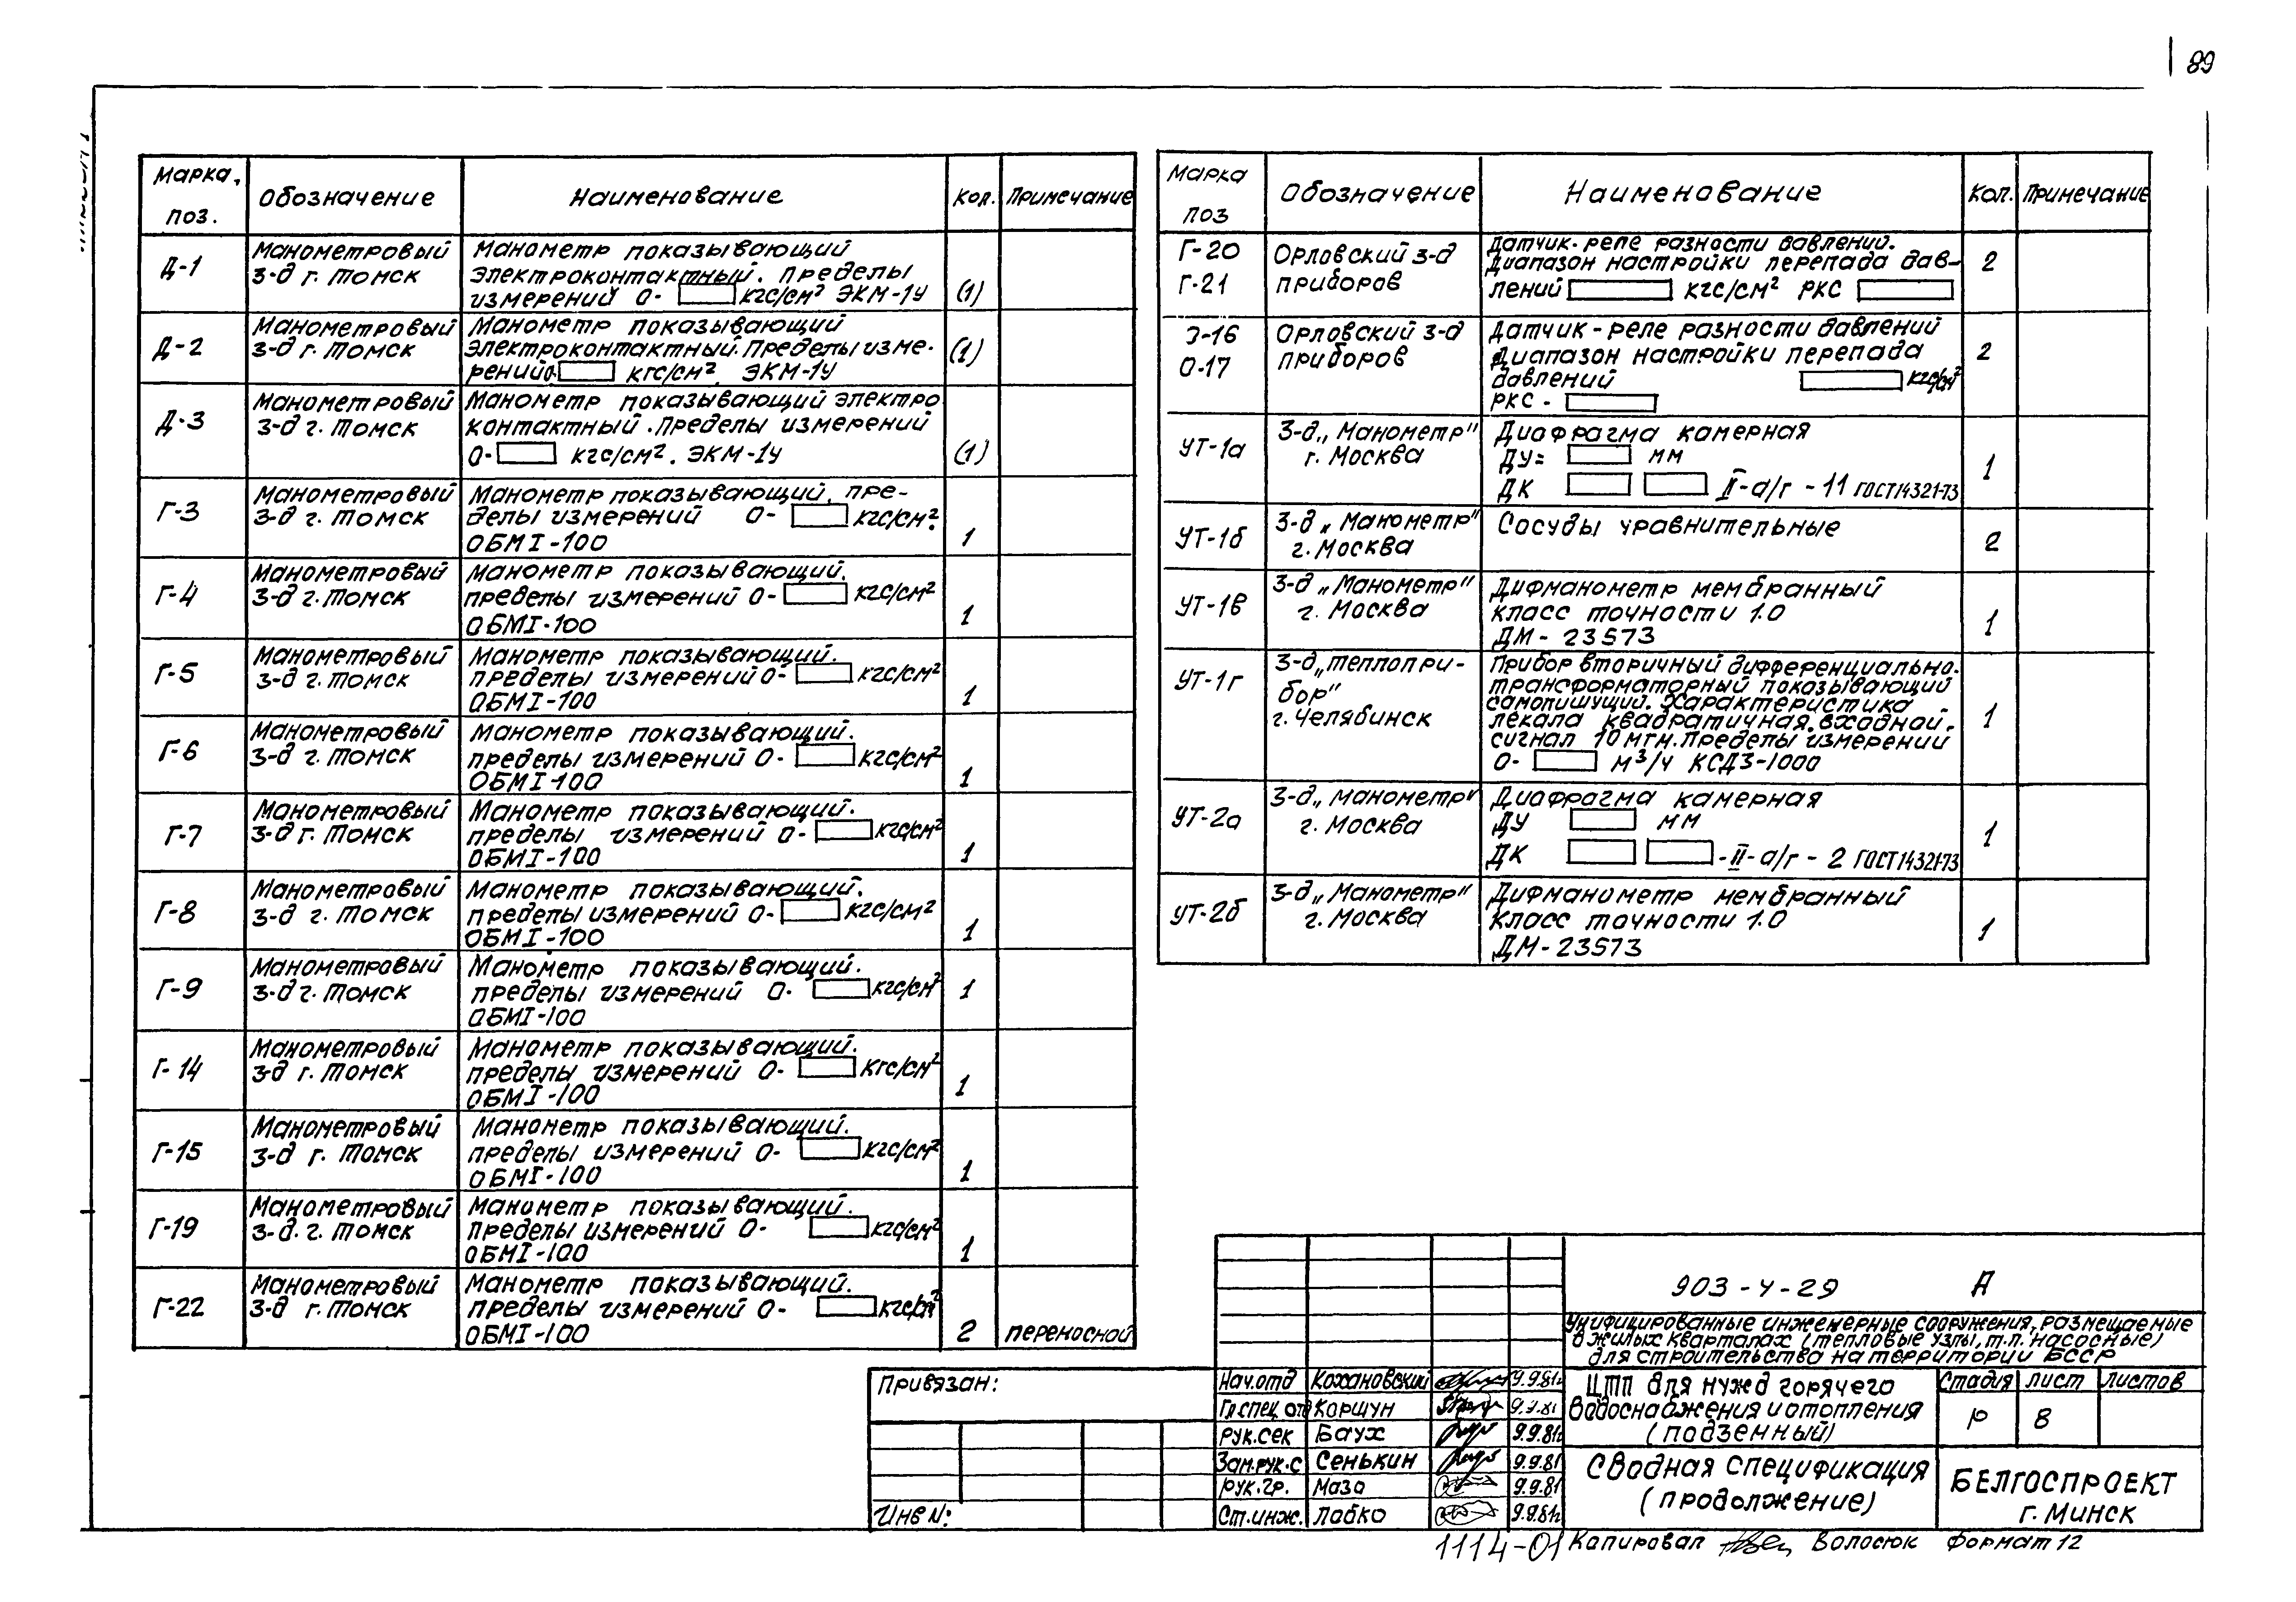 89
Марка, поз. Обозначение Наименование Кол. Примечание
Д-1 Манометровый Манометр показывающий
з-д г. Томск электроконтактный. Пределы
измерений 0- кгс/см² ЭКМ-1У (1)
Д-2 Манометровый Манометр показывающий
з-д г. Томск электроконтактный. Пределы изме- (1)
рений 0- кгс/см². ЭКМ-1У
Д-3 Манометровый Манометр показывающий электро
з-д г. Томск контактный. Пределы измерений
0- кгс/см². ЭКМ-1У (1)
Г-3 Манометровый Манометр показывающий, пре-
з-д г. Томск делы измерений 0- кгс/см².
ОБМ1-100 1
Г-4 Манометровый Манометр показывающий.
з-д г. Томск пределы измерений 0- кгс/см²
ОБМ1-100 1
Г-5 Манометровый Манометр показывающий.
з-д г. Томск пределы измерений 0- кгс/см²
ОБМ1-100 1
Г-6 Манометровый Манометр показывающий.
з-д г. Томск пределы измерений 0- кгс/см²
ОБМ1-100 1
Г-7 Манометровый Манометр показывающий.
з-д г. Томск пределы измерений 0- кгс/см²
ОБМ1-100 1
Г-8 Манометровый Манометр показывающий.
з-д г. Томск пределы измерений 0- кгс/см²
ОБМ1-100 1
Г-9 Манометровый Манометр показывающий.
з-д г. Томск пределы измерений 0- кгс/см² 1
ОБМ1-100
Г-14 Манометровый Манометр показывающий.
з-д г. Томск пределы измерений 0- кгс/см²
ОБМ1-100 1
Г-15 Манометровый Манометр показывающий.
з-д г. Томск пределы измерений 0- кгс/см²
ОБМ1-100 1
Г-19 Манометровый Манометр показывающий.
з-д. г. Томск пределы измерений 0- кгс/см²
ОБМ1-100 1
Г-22 Манометровый Манометр показывающий.
з-д г. Томск пределы измерений 0- кгс/см²
ОБМ1-100 2 переносной
Марка поз Обозначение Наименование Кол. Примечание
Г-20 Орловский з-д Датчик-реле разности давлений.
Г-21 приборов Диапазон настройки перепада дав- 2
лений кгс/см² РКС
Э-16 Орловский з-д Датчик-реле разности давлений
О-17 приборов Диапазон настройки перепада 2
давлений кгс/см²
РКС -
УТ-1а з-д „Манометр" Диафрагма камерная
г. Москва ДУ= мм
ДК II-а/г - 11 ГОСТ14321-73 1
УТ-1б з-д „Манометр" Сосуды уравнительные
г. Москва 2
УТ-1в з-д „Манометр" Дифманометр мембранный
г. Москва класс точности 1.0
ДМ-23573 1
УТ-1г з-д „Теплопри- Прибор вторичный дифференциально-
бор" трансформаторный показывающий
г. Челябинск самопишущий. Характеристика
лекала квадратичная. входной. 1
сигнал 10 мгн. Пределы измерений
0- м³/ч КСД3-1000
УТ-2а з-д „Манометр" Диафрагма камерная
г. Москва ДУ мм
ДК -II-а/г - 2 ГОСТ14321-73 1
УТ-2б з-д „Манометр" Дифманометр мембранный
г. Москва класс точности 1.0
ДМ-23573 1
903-4-29 А
Унифицированные инженерные сооружения, размещаемые
в жилых кварталах (тепловые узлы, т.п. насосные)
для строительства на территории БССР
Привязан:
Инв N:
Нач.отд Кохановский 9.9.81г
Гл.спец.отд Коршун 9.9.81
Рук.сек Баух 9.9.81г
Зам.рук.с Сенькин 9.9.81
Рук.гр. Мазо 9.9.81
Ст.инж. Лобко 9.9.81г
ЦТП для нужд горячего
водоснабжения и отопления
(подземный)
Стадия Лист Листов
Р 8
Сводная спецификация
(продолжение)
БЕЛГОСПРОЕКТ
г. Минск
1114-01 Копировал Волосюк Формат 12